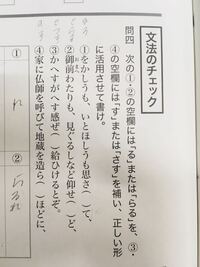 文法のチェック
問四 次の①・②の空欄には「る」または「らる」を、③・
④の空欄には「す」または「さす」を補い、正しい形
に活用させて書け。
①をかしうも、いとほしうも思さ（ ）て、
②御前わたりも、見ぐるしなど仰せ（ ）ど、
③かへすがへす感ぜ（ ）給ひけるとぞ。
④家に仏師を呼びて地蔵を造ら（ ）ほどに、
①
れ
②
らるれ